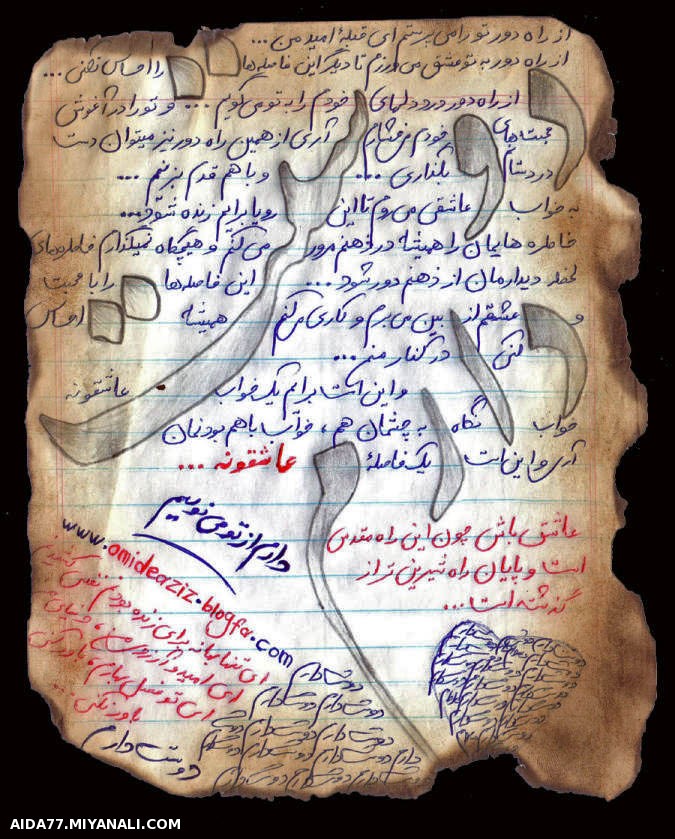 از راه دور تو را می پرستم ای قبلهٔ امید من ...
از راه دور به تو عشق می ورزم تا دیگر این فاصله ها را احساس نکنی ...
از راه دور درد دلهای خودم را به تو می گویم ... و تو را در آغوش
محبت های خودم می فشارم آری از همین راه دور نیز میتوان دست
در دستانم بگذاری ... و با هم قدم بزنیم ...
به خواب عاشقی می روم تا این رویا برایم زنده شود...
خاطره هایمان را همیشه در ذهنم مرور می کنم و هیچگاه نمیگذارم خاطره های
لحظه دیدارمان از ذهنم دور شود ... این فاصله ها را با محبت
و عشقم از بین می برم و کاری می کنم همیشه احساس
کنی در کنار منی ...
و این است برایم یک خواب عاشقونه
خواب نگاه به چشمان هم ، خواب با هم بودنمان
آری و این است یک فاصلهٔ عاشقونه ...
دارم از تو می نویسم
www.omideaziz.blogfa.com
عاشق باش چون این راه مقدس
است و پایان راه شیرین تر از
گذشته است ...
ای تنها بهانه برای زنده بودنم نفس کشیدنم
ای امید و آرزوی من ،
باور نکن ...
دوستت دارم
دوستت دارم
AIDA77.MIYANALI.COM